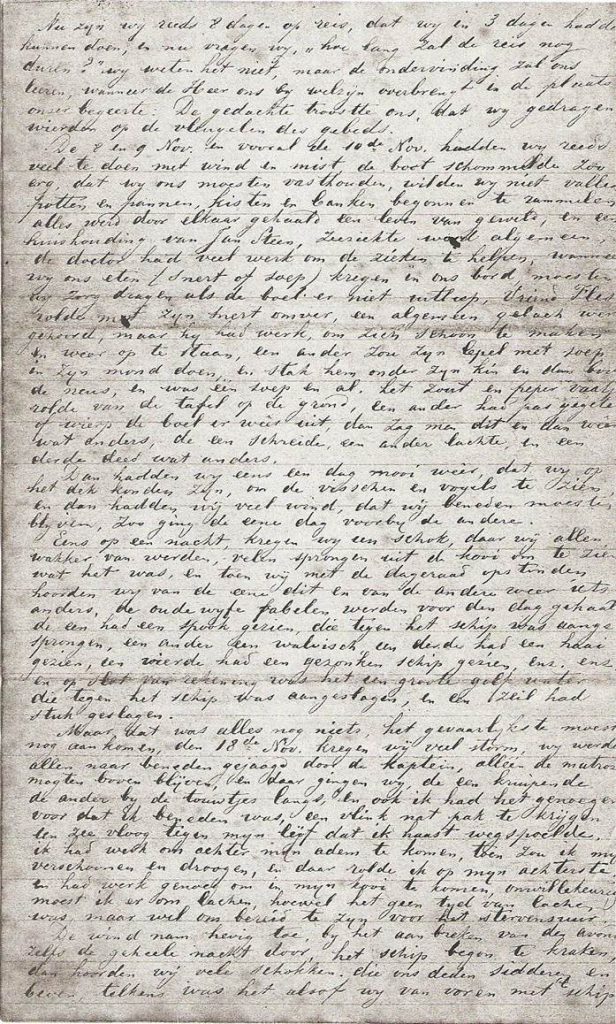 Nu zyn wy reeds 8 dagen op reis, dat wy in 3 dagen hadde
kunnen doen, en nu vragen wy, "hoe lang zal de reis nog
duren?" wy weten het niet, maar de ondervinding zal ons
leeren, wanneer de Heer ons by welzyn overbrengt in de plaats
onzer begeerte. De gedachte troostte ons, dat wy gedragen
wierden op de vleugelen des gebeds.
De 8 en 9 Nov. en vooral de 10de Nov. hadden wy reeds
veel te doen met wind en mist de boot schommelde zoo
erg, dat wy ons moesten vasthouden, wilden wy niet valle
potten en pannen, kisten en banken begonnen te rammelen
alles wierd door elkaar gehaald een leven van geweld, en ee
huishouding van Jan Steen, Zeeziekte werd algemeen,
de doctor had veel werk om de zieken te helpen, wanneer
wy ons eten (Snert of soep) kregen in ons bord moesten
wy zorg dragen als de boel er niet uitliep, Vriend
rolde met zyn Snert omver, een algemeen gelach we
gehoord, maar hy had werk, om zich schoon te maken
en weer op te staan, een ander zou zyn lepel met soep
in zyn mond doen, en stak hem onder zyn kin en dan bov
de neus, en was een soep en al. het zout en peper vaa
rolde van de tafel op de grond, een ander had pas gegete
of wierp de boel er weer uit, dan zag men dit en dan wee
wat anders, de een schreide, een ander lachte en een
derde deed wat anders.
Dan hadden wy eens een dag mooi weer, dat wy op
het dek konden zyn, om de visschen en vogels te zien
en dan hadden wy veel wind, dat wy beneden moeste
blyven, Zoo ging de eene dag voorby de andere.
Eens op een nacht, kregen wy een schok, daar wy allen
wakker van werden, velen sprongen uit de kooi om te zie
wat het was, en toen wy met de dageraad opstonden
hoorden wy van de eene dit en van de andere weer iets
anders, de oude wyfe fabelen werden voor den dag gehaa
de een had een spook gezien, die tegen het schip was aange
sprongen, een ander een walvisch een derde had een haai
gezien, een vierde had een gezonken schip gezien, enz. enz
en op slot van rekening was het een groote golf water
die tegen het schip was aangeslagen, en een Zeil had
stuk geslagen.
Maar dat was alles nog niets, het gevaarlykste moest
nog aankomen, den 18de Nov. kregen wy veel storm, wy werde
allen naar beneden gejaagd door de kaptein, alleen de matroz
magten boven blyven, en daar gingen wy de een kruipende
de ander by de touwtjes langs, en ook ik had het genoegen
voor dat ik beneden was, een vlink nat pak te krygen
een zee vloog tegen myn lyf dat ik haast wegspoelde.
ik had werk om achter myn adem te komen, toen zou ik my
verschoonen en droogen, en daar rolde ik op myn achterste
en had werk genoeg om in myn kooi te komen, onwillekeurig
moest ik er om lachen, hoewel het geen tyd van lachen
was, maar wel om bereid te zyn voor het stervensuur.
De wind nam hevig toe, by het aanbreken van den avon
zelfs de geheele nacht door, het schip begon te kraken,
dan hoorden wij vele schokken. die ons deden sidderen en
beven telkens was het alsof wy van voren met 't schip